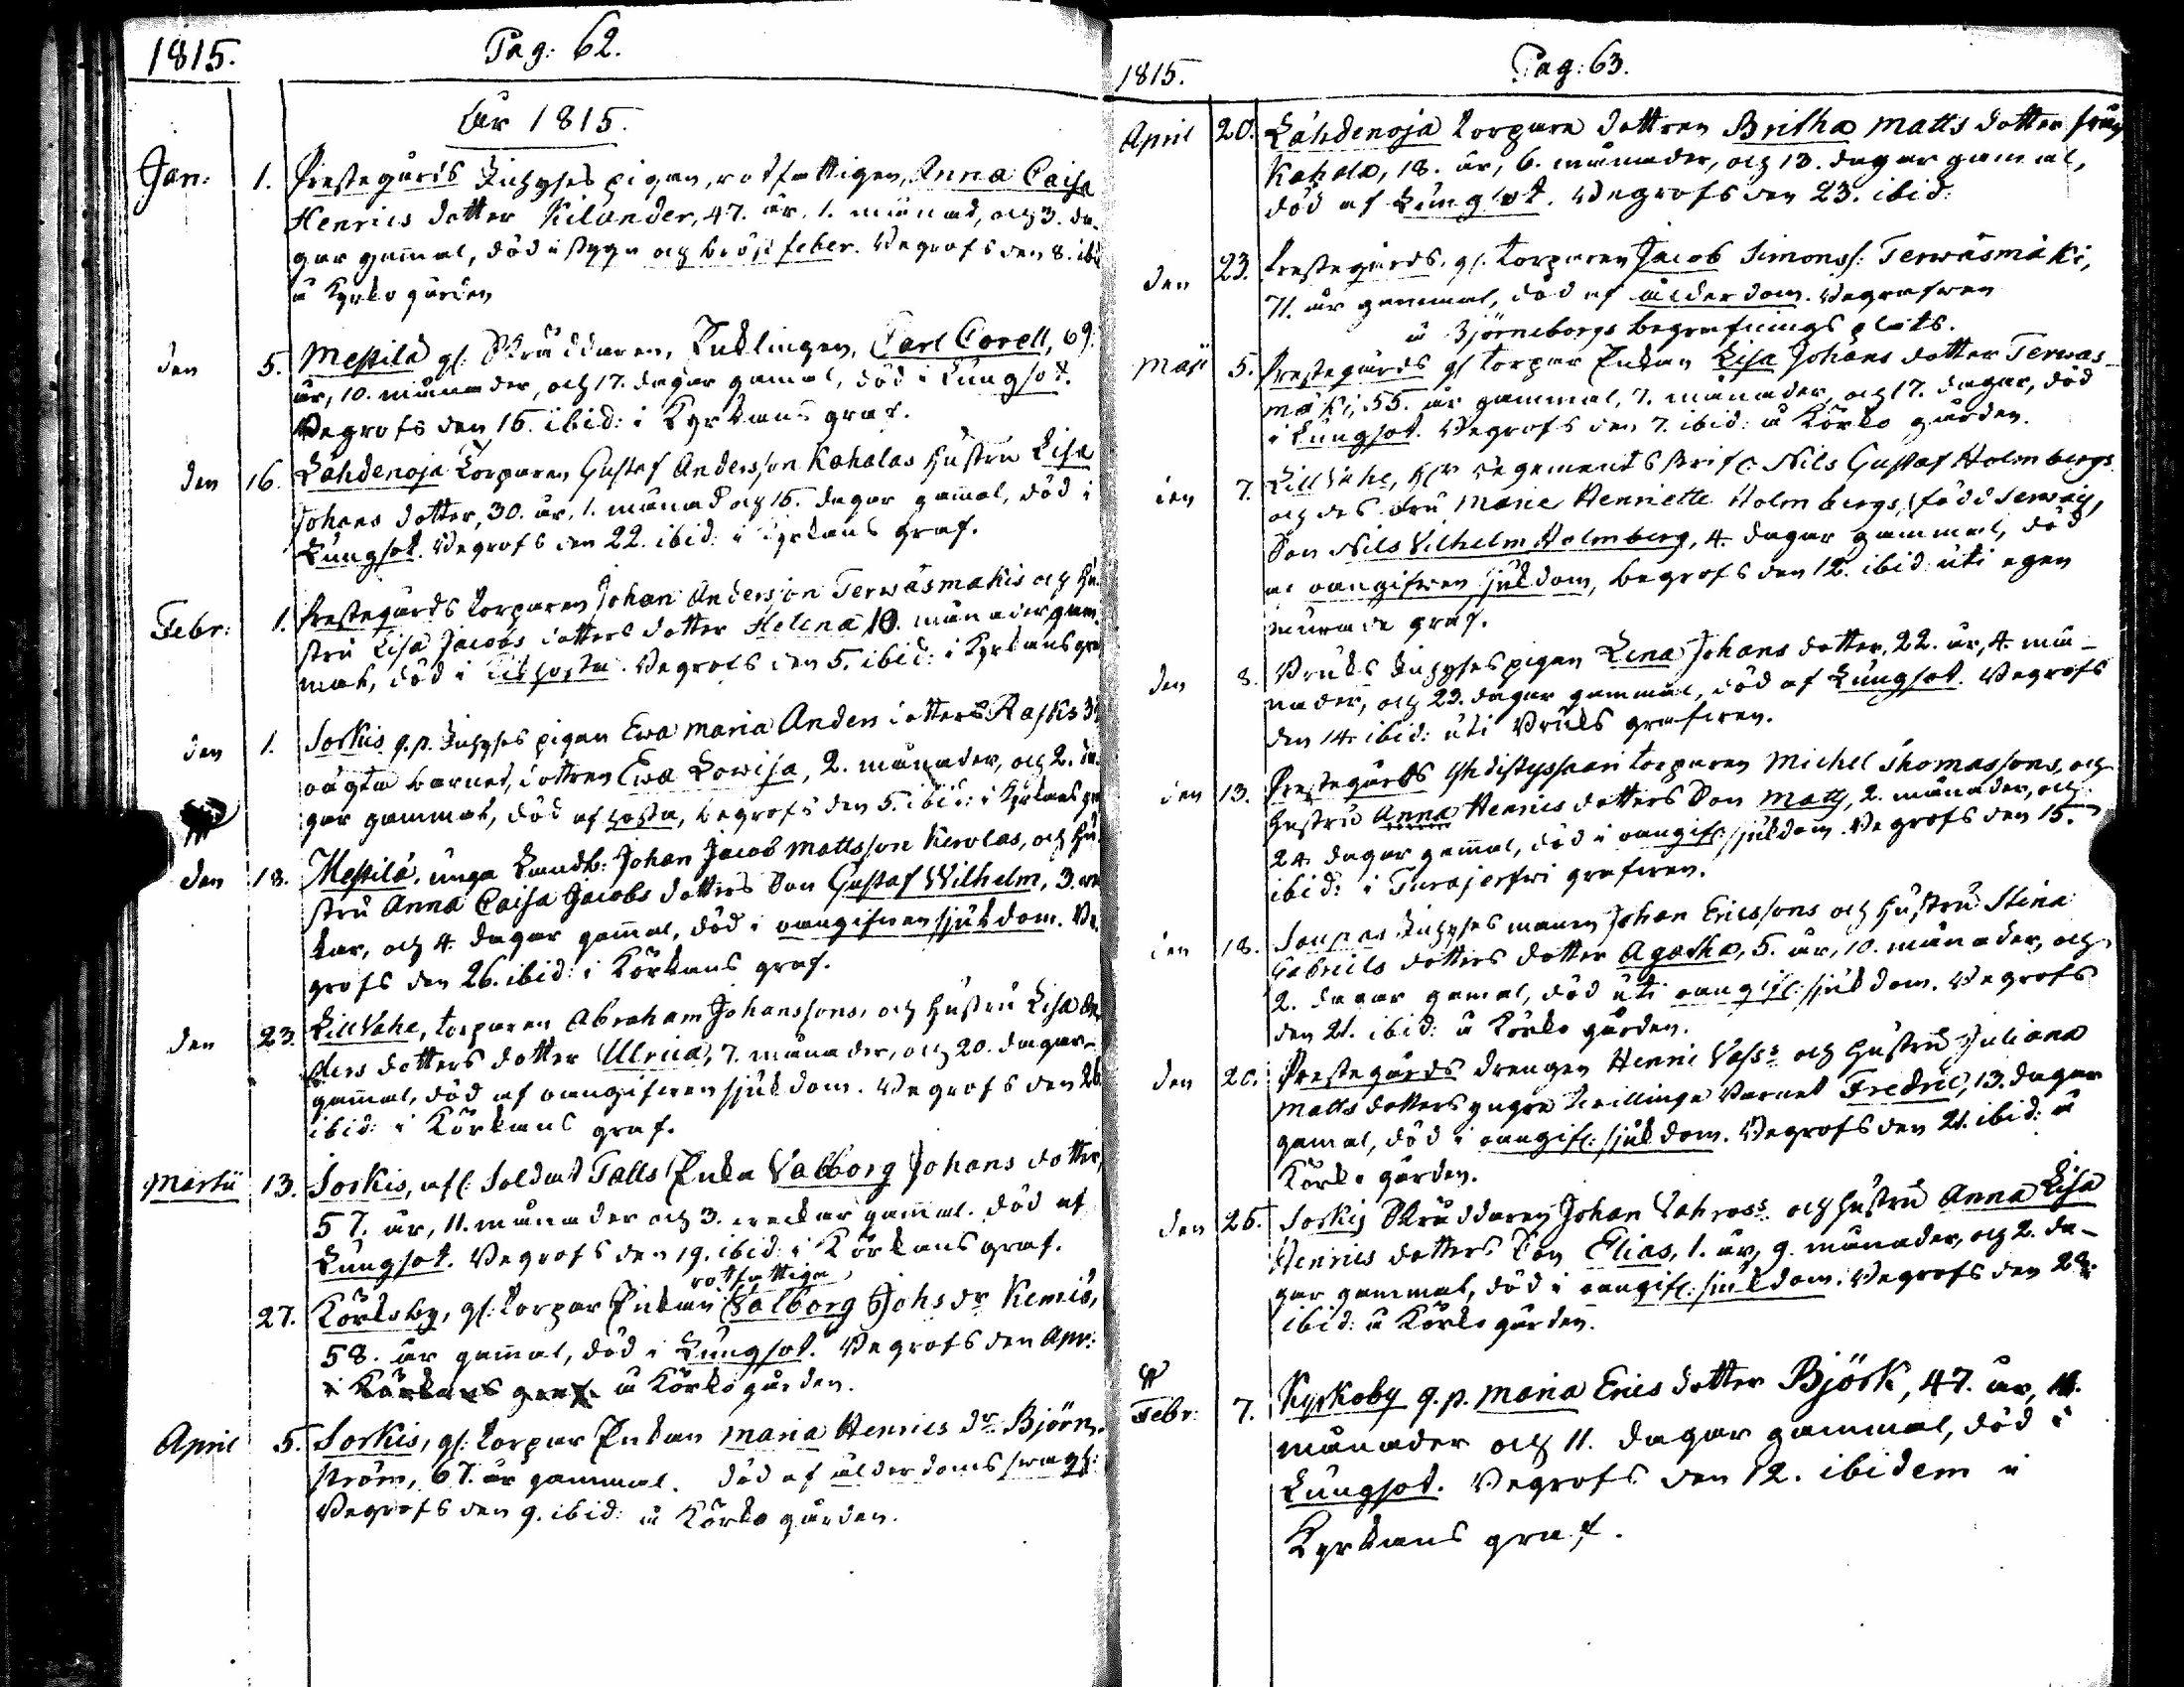 1815. Pag: 62.
År 1815.
Jan: 1. Prestegårds Inhyses pigan, rotfattigen, Anna Caisa
Henrics dotter Kilander, 47. år, 1. månad, och 3. da-
gar gam̄al, död i stygn och bröst feber. Begrofs den 8. ibid
å Kyrko gården
den 5. Mestilä gl: Skräddaren, Enklingen, Carl Corell, 69.
år, 10. månader, och 17. dagar gamal, död i Lungsot.
Begrofs den 15. ibid: i Kyrkans graf.
den 16. Lähdenoja Torparen Gustaf Andersson Kahalas hustru Lisa
Johans dotter, 30. år, 1. månad och 16. dagar gam̄al, död i
Lungsot. Begrofs den 22. ibid: i Kyrkans graf.
Febr: 1. Prestegårds torparen Johan Andersson Terwäsmäkis och Hu-
stru Lisa Jacobs dotters dotter Helena 10. månader gam-
mal, död i Kikhosta. Begrofs den 5. ibid: i Kyrkans gra
den 1. Sorkis q.p. Inhyses pigan Ewa Maria Anders dotters Rasks
oägta barnet, dottren Ewa Lowisa, 2. månader, och 2. da-
gar gammal, död af hosta, begrofs den 5. ibid: i Kyrkans gr
den 18. Mestilä, unga Landb: Johan Jacob Mattsson Kerolas, och Hu-
stru Anna Caisa Jacobs dotters Son Gustaf Wilhelm, 3. we
kor, och 4. dagar gam̄al, död i oangifwen sjukdom. Be
grofs den 26. ibid: i Körkans graf.
den 23. Lill Vahe, torparen Abraham Johanssons, och hustru Lisa An
ders dotters dotter Ulrica, 7. månader, och 20. dagar
gam̄al, död af oangifwen sjukdom. Begrofs den 26
ibid: i Körkans graf.
Martii 13. Sorkis, afl: Soldat Talls Enka Valborg Johans dotter,
57. år, 11. månader och 3. weckor gam̄al. död af
Lungsot. Begrofs den 19. ibid: i Körkans graf.
rotfattiga
27. Körkoby, gl: torpar Enkan Valborg Johs dr Kemis,
58. år gam̄al, död i Lungsot. Begrofs den Apr:
i Körkans graf. å Körkogården.
April 5. Sorkis, gl: torpar Enkan Maria Henrics dr Björn-
ström, 67. år gammal. död af ålderdoms swagh:
Begrofs den 9. ibid: å Körko gården.
1815. Pag: 63.
April 20. Lähdenoja torpare dottren Britha Matts dotter från
Kahala, 18. år, 6. månader, och 13. dagar gammal,
död af Lungsot. Begrofs den 23. ibid:
den 23. Prestegårds. gl. torparen Jacob Simonss: Terwäsmäki,
71. år gammal, död af ålderdom. Begrafwen
å Björneborgs begrafnings plats.
Maji 5. Prestegårds gl torpar Enkan Lisa Johans dotter Terwas-
mäki, 55. år gammal, 7. månader, och 17. dagar, död
i Lungsot. Begrofs den 7. ibid: å Körko gården.
den 7. Lill Vahe, Hr Regements Skrif: Nils Gustaf Holmbergs
och des fru Marie Henriette Holmbergs, född Servais,
Son Nils Vilhelm Holmberg, 4. dagar gammal, död
af oangifwen sjukdom, begrofs den 12. ibid: uti egen
murade graf.
den 8. Bruks Inhyses pigan Lena Johans dotter, 22. år, 4. må-
nader, och 23. dagar gammal, död af Lungsot. Begrofs
den 14. ibid: uti Bruks grafwen.
den 13. Prestegårds Yhdistyssaari torparen Michel Thomassons, och
hustru Anna Henrics dotters Son Matts, 2. månader, och
24. dagar gam̄al, död i oangif: sjukdom. Begrofs den 15.
ibid: i Turajerfwi grafwen.
den 18. Inhyses mannen Johan Ericssons och hustru Stina
Gabriels dotters dotter Agatha, 5. år, 10. månader, och
2. dagar gamal, död uti oangif: sjukdom. Begrofs
den 21. ibid: å Körko gården.
den 20. Prestegårds drengen Henric Vass: och hustru Juliana
Matts dotters yngre twillinge Barnet Fredric, 13. dagar
gamal, död i oangif: sjukdom. Begrofs den 21. ibid: å
Körko gården.
den 25. Sorkis Skräddaren Johan Vahross: och hustru Anna Lisa
Henrics dotters Son Elias, 1. år, 9. månader, och 2. da-
gar gammal, död i oangif: sjukdom. Begrofs den 28.
ibid: å Körko gården.
Febr: 7. Kyrkoby q.p. Maria Erics dotter Björk, 47. år, 11.
månader och 11. dagar gammal, död i
Lungsot. Begrofs den 12. ibidem i
Kyrkans graf.